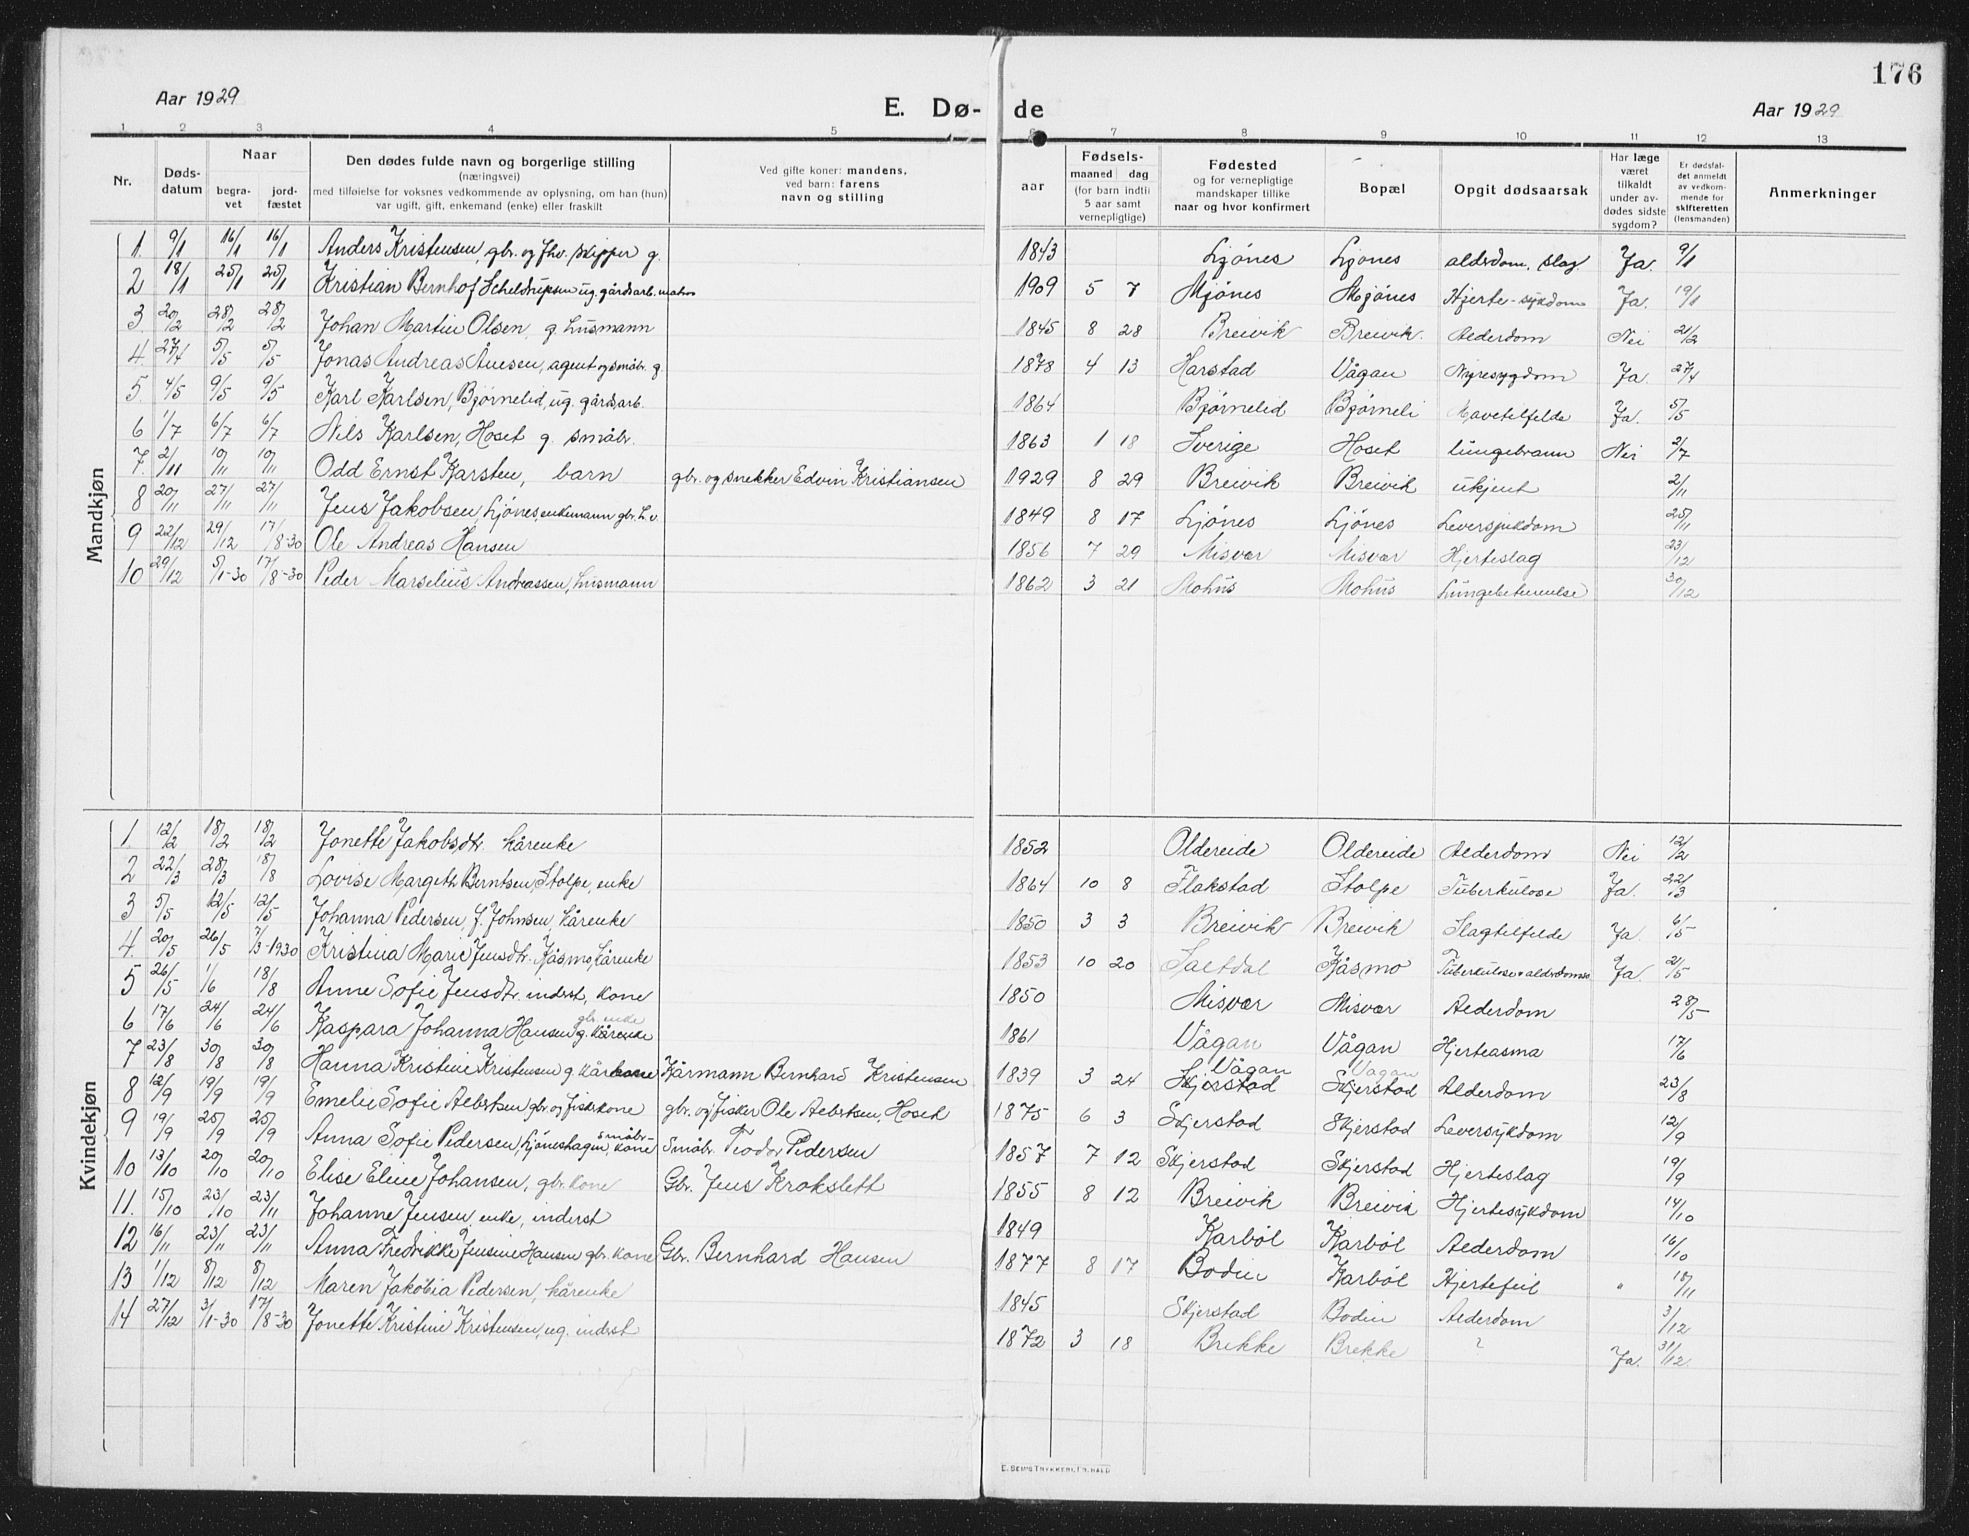 176
Aar 1929 E. Dø- de Aar 1929
1 2 3 4 5 6 7 8 9 10 11 12 13
Nr. Døds-datum Naar begra-vet jord-fæstet Den dødes fulde navn og borgerlige stilling (næringsvei) med tilføielse for voksnes vedkommende av oplysning, om han (hun) var ugift, gift, enkemand (enke) eller fraskilt Ved gifte koner: mandens, ved barn: farens navn og stilling aar Fødsels- maaned dag (for barn indtil 5 aar samt vernepligtige) Fødested og for vernepligtige mandskaper tillike naar og hvor konfirmert Bopæl Opgit dødsaarsak Har læge været tilkaldt under av-dødes sidste sygdom? Er dødsfal-det anmeldt av vedkom-mende for skifteretten (lensmanden) Anmerkninger
Mandkjøn
1. 9/1 16/1 16/1 Anders Kristensen, gbr. og fhv. skipper g. 1843 Ljönes Ljönes alderdom, slag. Ja. 9/1
2 18/1 25/1 25/1 Kristian Bernhof Scheldrupsen ug. gårdsarb. 1909 5 7 Mjönes Mjönes Hjerte-sykdom Ja. 19/1
3. 20/2 28/2 28/2 Johan Martin Olsen, g. husmann 1845 8 28 Breivik Breivik. Alderdom Nei 21/2
4. 27/4 5/5 5/5 Jonas Andreas Ånesen, agent og småbr. g. 1878 4 13 Harstad Vågan Nyresygdom Ja. 27/4
5. 4/5 9/5 9/5 Karl Karlsen, Bjørnelid, ug. gårdsarb. 1864 Bjørnelid Bjørneli Mavetilfelde Ja. 5/5
6 1/7 6/7 6/7 Nils Karlsen, Hoset g. småbr. 1863 1 18 Sverige Hoset lungebrann Nei 2/7
7. 2/11 10/11 10/11 Odd Ernst Karsten, barn gbr. og snekker Edvin Kristiansen 1929 8 29 Breivik Breivik ukjent 2/11
8 20/11 27/11 27/11 Jens Jakobsen, Ljönes, enkemann gbr. 1849 8 17 Ljönes Ljönes Leversjukdom 25/11
9 22/12 29/12 17/8-30 Ole Andreas Hansen 1856 7 29 Misvær Misvær Hjerteslag 23/12
10 29/12 5/1-30 17/8-30 Peder Marselius Andreassen, husmann 1862 3 21 Mohus Mohus Lungebetennelse 30/12
Kvindekjøn
1. 12/2 18/2 18/2 Jonette Jakobsdtr. kårenke 1852 Oldereide Oldereide Alderdom Nei 12/2
2 22/3 28/3 18/8 Lovise Margeth Berntsen, Stolpe, enke 1864 10 8 Flakstad Stolpe Tuberkulose Ja. 22/3
3 5/5 12/5 12/5 Johanna Pedersen, f. Johnsen, kårenke 1850 3 3 Breivik Breivik Slagtilfelde Ja. 6/5
4. 20/5 26/5 7/3-1930 Kristina Marie Jensdtr. Kåsmo, kårenke 1853 10 20 Saltdal Kåsmo Tuberkulose Ja. 21/5
5 26/5 1/6 18/8 Anne Sofie Jensdtr. inderst, kone 1850 Misvær Misvær Alderdom 28/5
6 17/6 24/6 24/6 Kaspara Johanna Hansen g. kårenke gbr. enke 1861 Vågan Vågan Hjerteasma 17/6
7 23/8 30/8 30/8 Hanna Kristine Kristensen g. kårkone Kårmann Bernhard Kristensen 1839 3 24 Vågan Skjerstad Vågan Skjerstad Alderdom 23/8
8 12/9 19/9 19/9 Emelie Sofie Albertsen gbr. og fiskerkone gbr. og fisker Ole Albertsen, Hoset 1875 6 3 Skjerstad Skjerstad Leversykdom 12/9
9 19/9 25/9 25/9 Anna Sofie Pedersen, Ljöneshagen, småbr-kone Småbr. Teodor Pedersen 1857 7 12 Skjerstad Skjerstad Hjerteslag 19/9
10 13/10 20/10 20/10 Elise Eline Johansen, gbr. kone Gbr. Jens Krokslett 1855 8 12 Breivik Breivik Hjertesykdom 14/10
11. 15/10 23/10 23/11 Johanne Jensen, enke, inderst 1849 Karböl Karböl Alderdom 16/10
12 16/11 23/11 23/11 Anna Fredrikke Jensine Hansen gbr. kone Gbr. Bernhard Hansen 1877 8 17 Bodin Karböl Hjertefeil " 18/11
13 1/12 8/12 8/12 Maren Jakobia Pedersen, kårenke 1845 Skjerstad Bodin Alderdom 3/12
14 27/12 3/1-30 17/8-30 Jonette Kristine Kristensen, ug. inderst 1872 3 18 Brekke Brekke ? Ja. 31/12
E. SEM'S TRYKKERI, FR.HALD